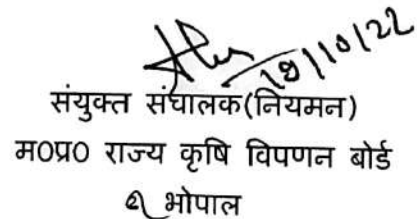 19/10/22
संयुक्त संचालक(नियमन)
म0प्र0 राज्य कृषि विपणन बोर्ड
भोपाल